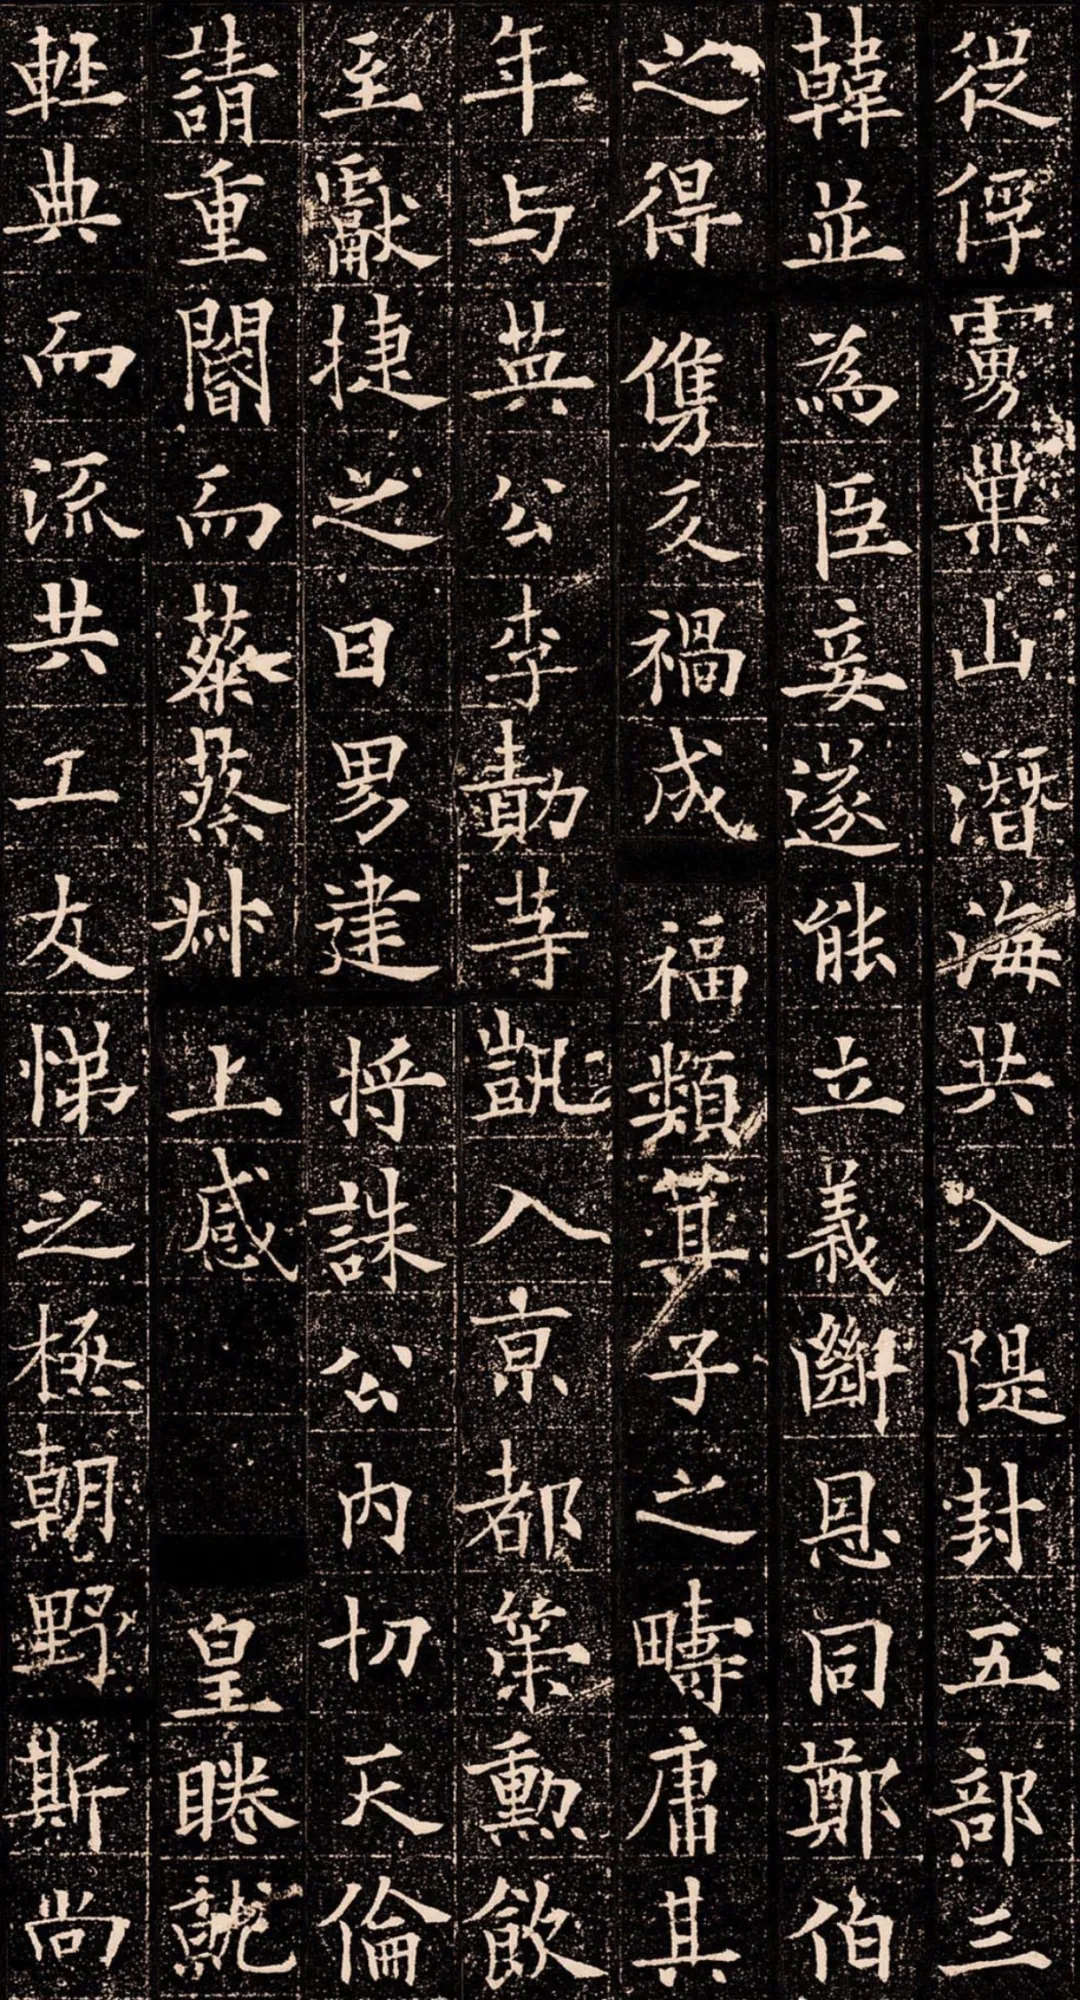 從俘虜巢山潛海共入隄封五部三
韓並為臣妾遂能立義斷恩同鄭伯
之得儁反禍成福類箕子之疇庸其
年与英公李勣等凱入京都策勳飲
至獻捷之日男建將誅公内切天倫
請重閽而蔡蔡叔上感皇睠就
輕典而流共工友悌之極朝野斯尚